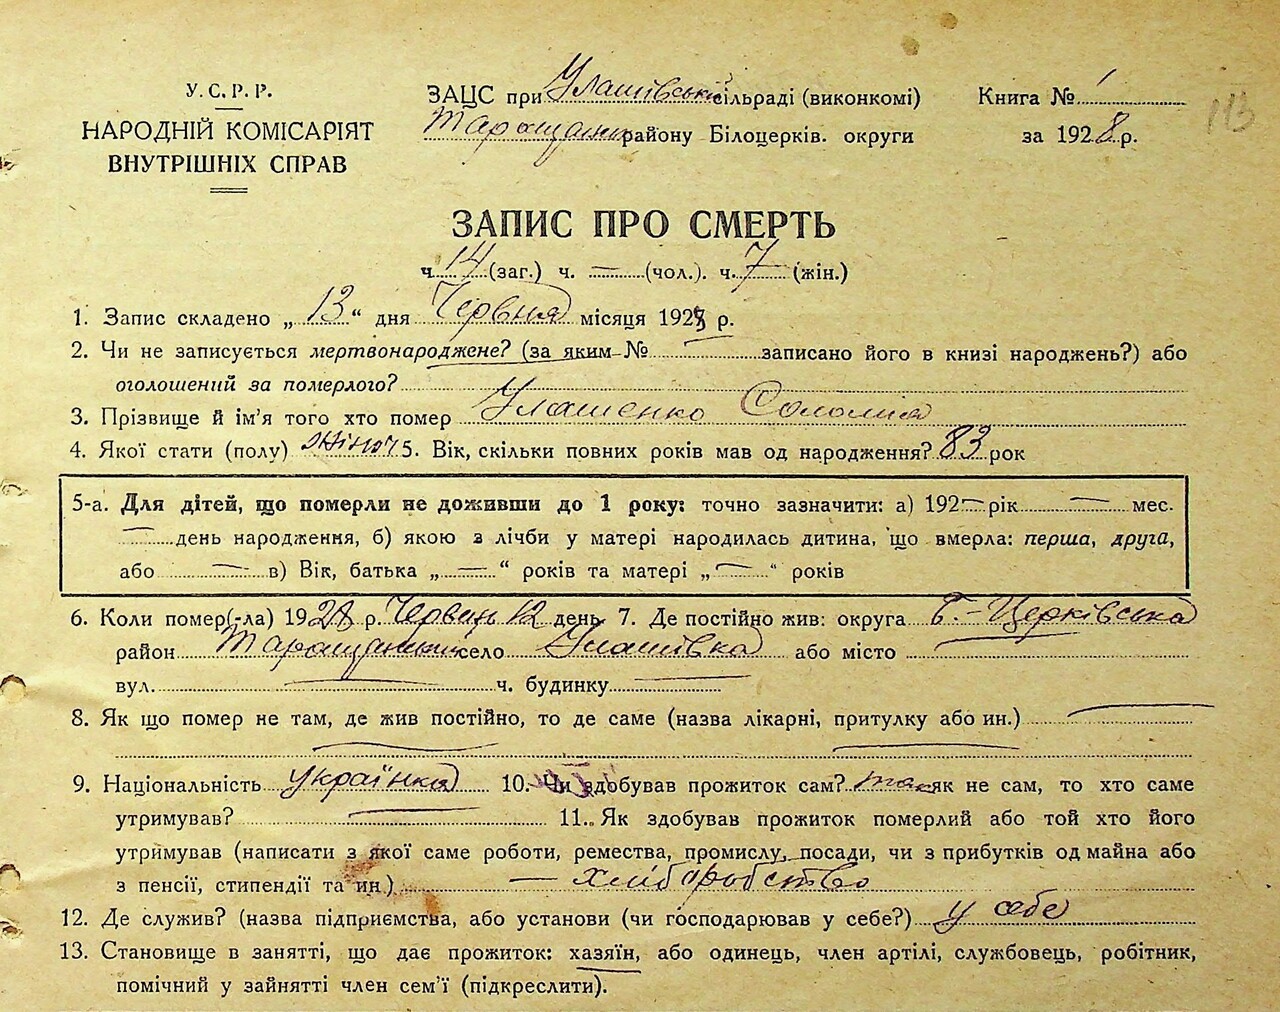 У. С. Р. Р.
НАРОДНІЙ КОМІСАРІЯТ
ВНУТРІШНІХ СПРАВ
ЗАЦС при Улашівські сільраді (виконкомі)
Таращанськ району Білоцерків. округи
Книга № 1
за 1928 р.
113
ЗАПИС ПРО СМЕРТЬ
ч. 14 (заг.) ч. — (чол.). ч. 7 (жін.)
1. Запис складено „ 13 “ дня Червня місяця 1928 р.
2. Чи не записується мертвонароджене? (за яким № — записано його в книзі народжень?) або
оголошений за померлого?
3. Прізвище й ім'я того хто помер Улашенко Соломія
4. Якої стати (полу) жіноч 5. Вік, скільки повних років мав од народження? 83 рок
5-а. Для дітей, що померли не доживши до 1 року: точно зазначити: а) 192— рік — мес.
— день народження, б) якою з лічби у матері народилась дитина, що вмерла: перша, друга,
або — в) Вік, батька „ — “ років та матері „ — “ років
6. Коли помер(-ла) 1928 р. Червня 12 день 7. Де постійно жив: округа Б.-Церківська
район Таращанськ село Улашівка або місто —
вул. — ч. будинку —
8. Як що помер не там, де жив постійно, то де саме (назва лікарні, притулку або ин.) —
— —
9. Національність українка 10. Чи здобував прожиток сам? так як не сам, то хто саме
утримував? — 11. Як здобував прожиток померлий або той хто його
утримував (написати з якої саме роботи, ремества, промислу, посади, чи з прибутків од майна або
з пенсії, стипендії та ин.) — хліборобство
12. Де служив? (назва підприємства, або установи (чи господарював у себе?) у себе
13. Становище в занятті, що дає прожиток: хазяїн, або одинець, член артілі, службовець, робітник,
помічний у зайнятті член сем'ї (підкреслити).